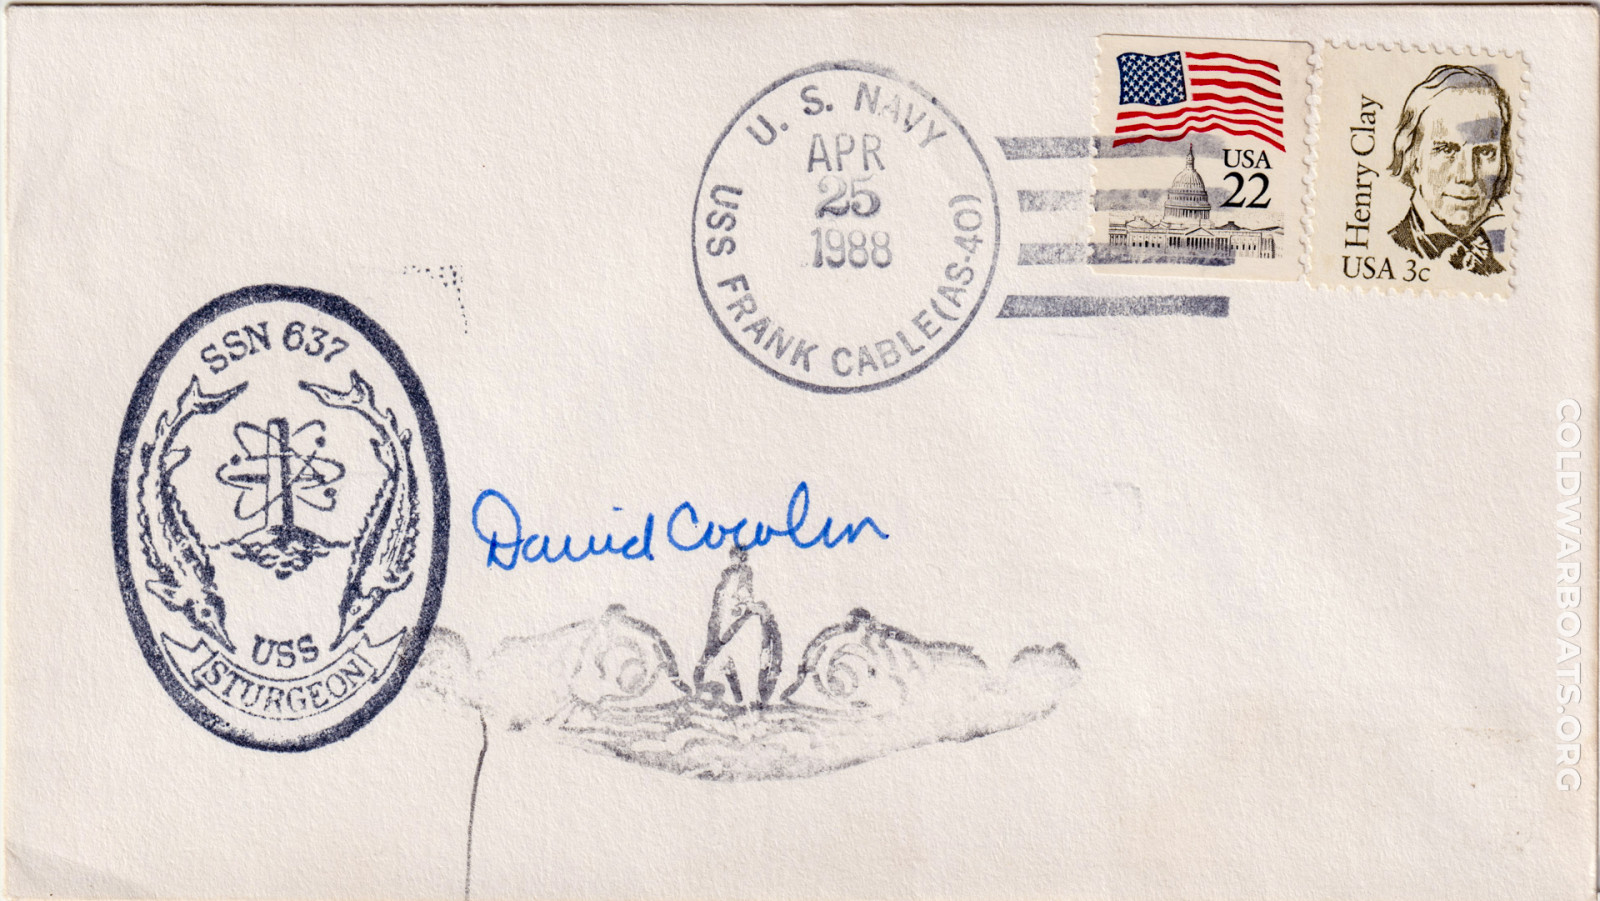 U. S. NAVY
APR
25
1988
USS FRANK CABLE (AS-40)
USA
22
Henry Clay
USA 3c
SSN 637
USS
STURGEON
David
COLDWARBOATS.ORG